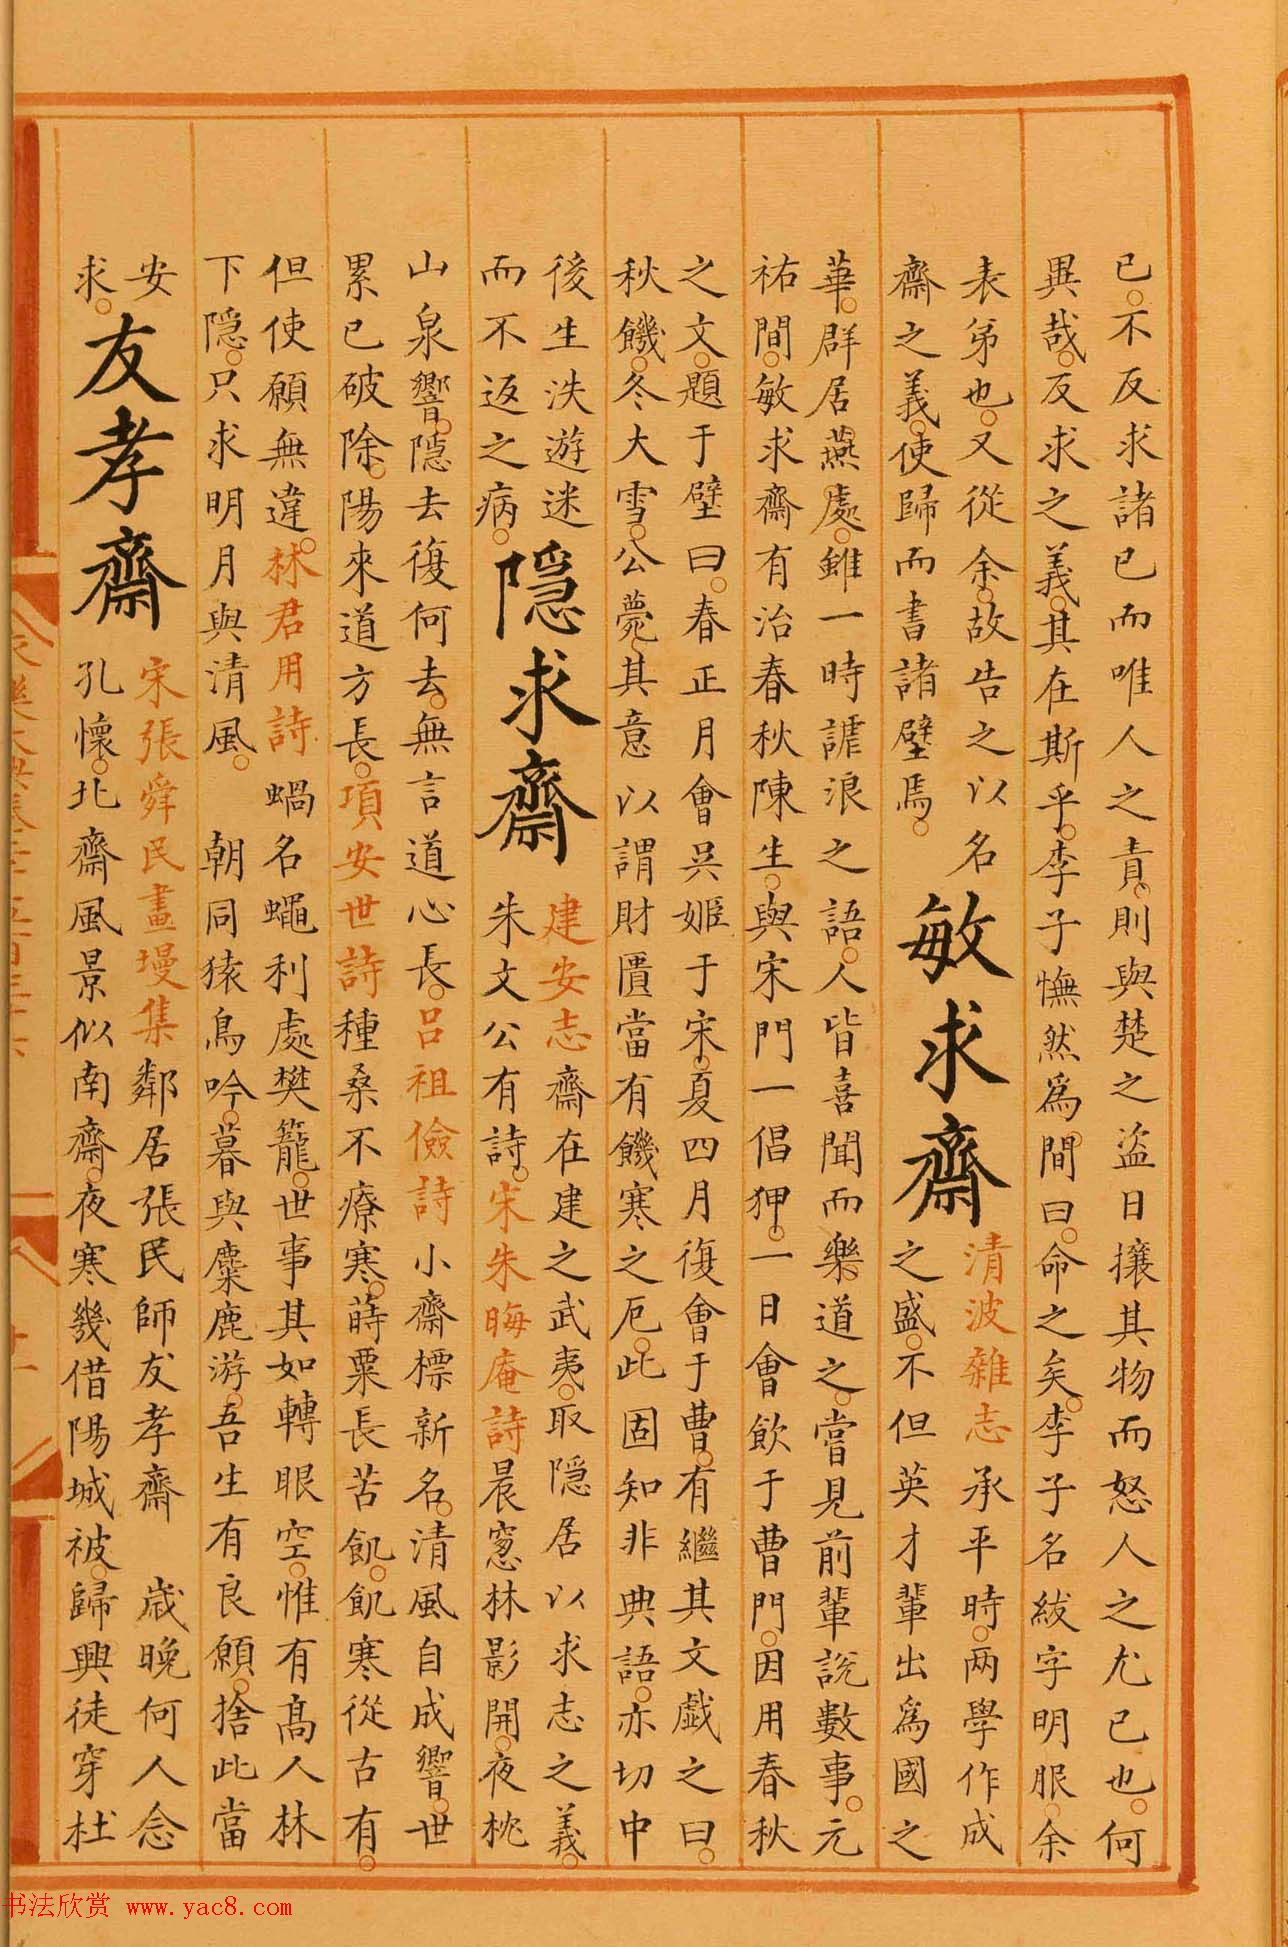 已。不反求諸已而唯人之責。則與楚之盜日攘其物而怒人之尤已也。何
異哉。反求之義。其在斯乎。李子憮然為間曰。命之矣。李子名紱字明服。余
表弟也。又從余。故告之以名
齋之義。使歸而書諸壁焉。
敏求齋
清波雜志承平時。两學作成
之盛。不但英才輩出為國之
華。群居燕處。雖一時謔浪之語。人皆喜聞而樂道之。嘗見前輩說數事。元
祐間。敏求齋有治春秋陳生。與宋門一倡狎。一日會飲于曹門。因用春秋
之文。題于壁曰。春正月會吳姬于宋。夏四月復會于曹。有繼其文戲之曰。
秋饑。冬大雪。公薨。其意以謂財匱當有饑寒之厄。此固知非典語。亦切中
後生泆遊迷
而不返之病。
隱求齋
建安志齋在建之武夷。取隱居以求志之義。
朱文公有詩。宋朱晦庵詩晨窓林影開。夜枕
山泉響。隱去復何去。無言道心長。呂祖儉詩小齋標新名。清風自成響。世
累已破除。陽來道方長。項安世詩種桑不療寒。蒔粟長苦飢。飢寒從古有。
但使願無違。林君用詩 蝸名蠅利處樊籠。世事其如轉眼空。惟有高人林
下隱。只求明月與清風。 朝同猿鳥吟。暮與麋鹿游。吾生有良願。捨此當
安
求。
友孝齋
宋張舜民畫墁集鄰居張民師友孝齋 歲晚何人念
孔懷。北齋風景似南齋。夜寒幾借陽城被。歸興徒穿杜
书法欣赏 www.yac8.com